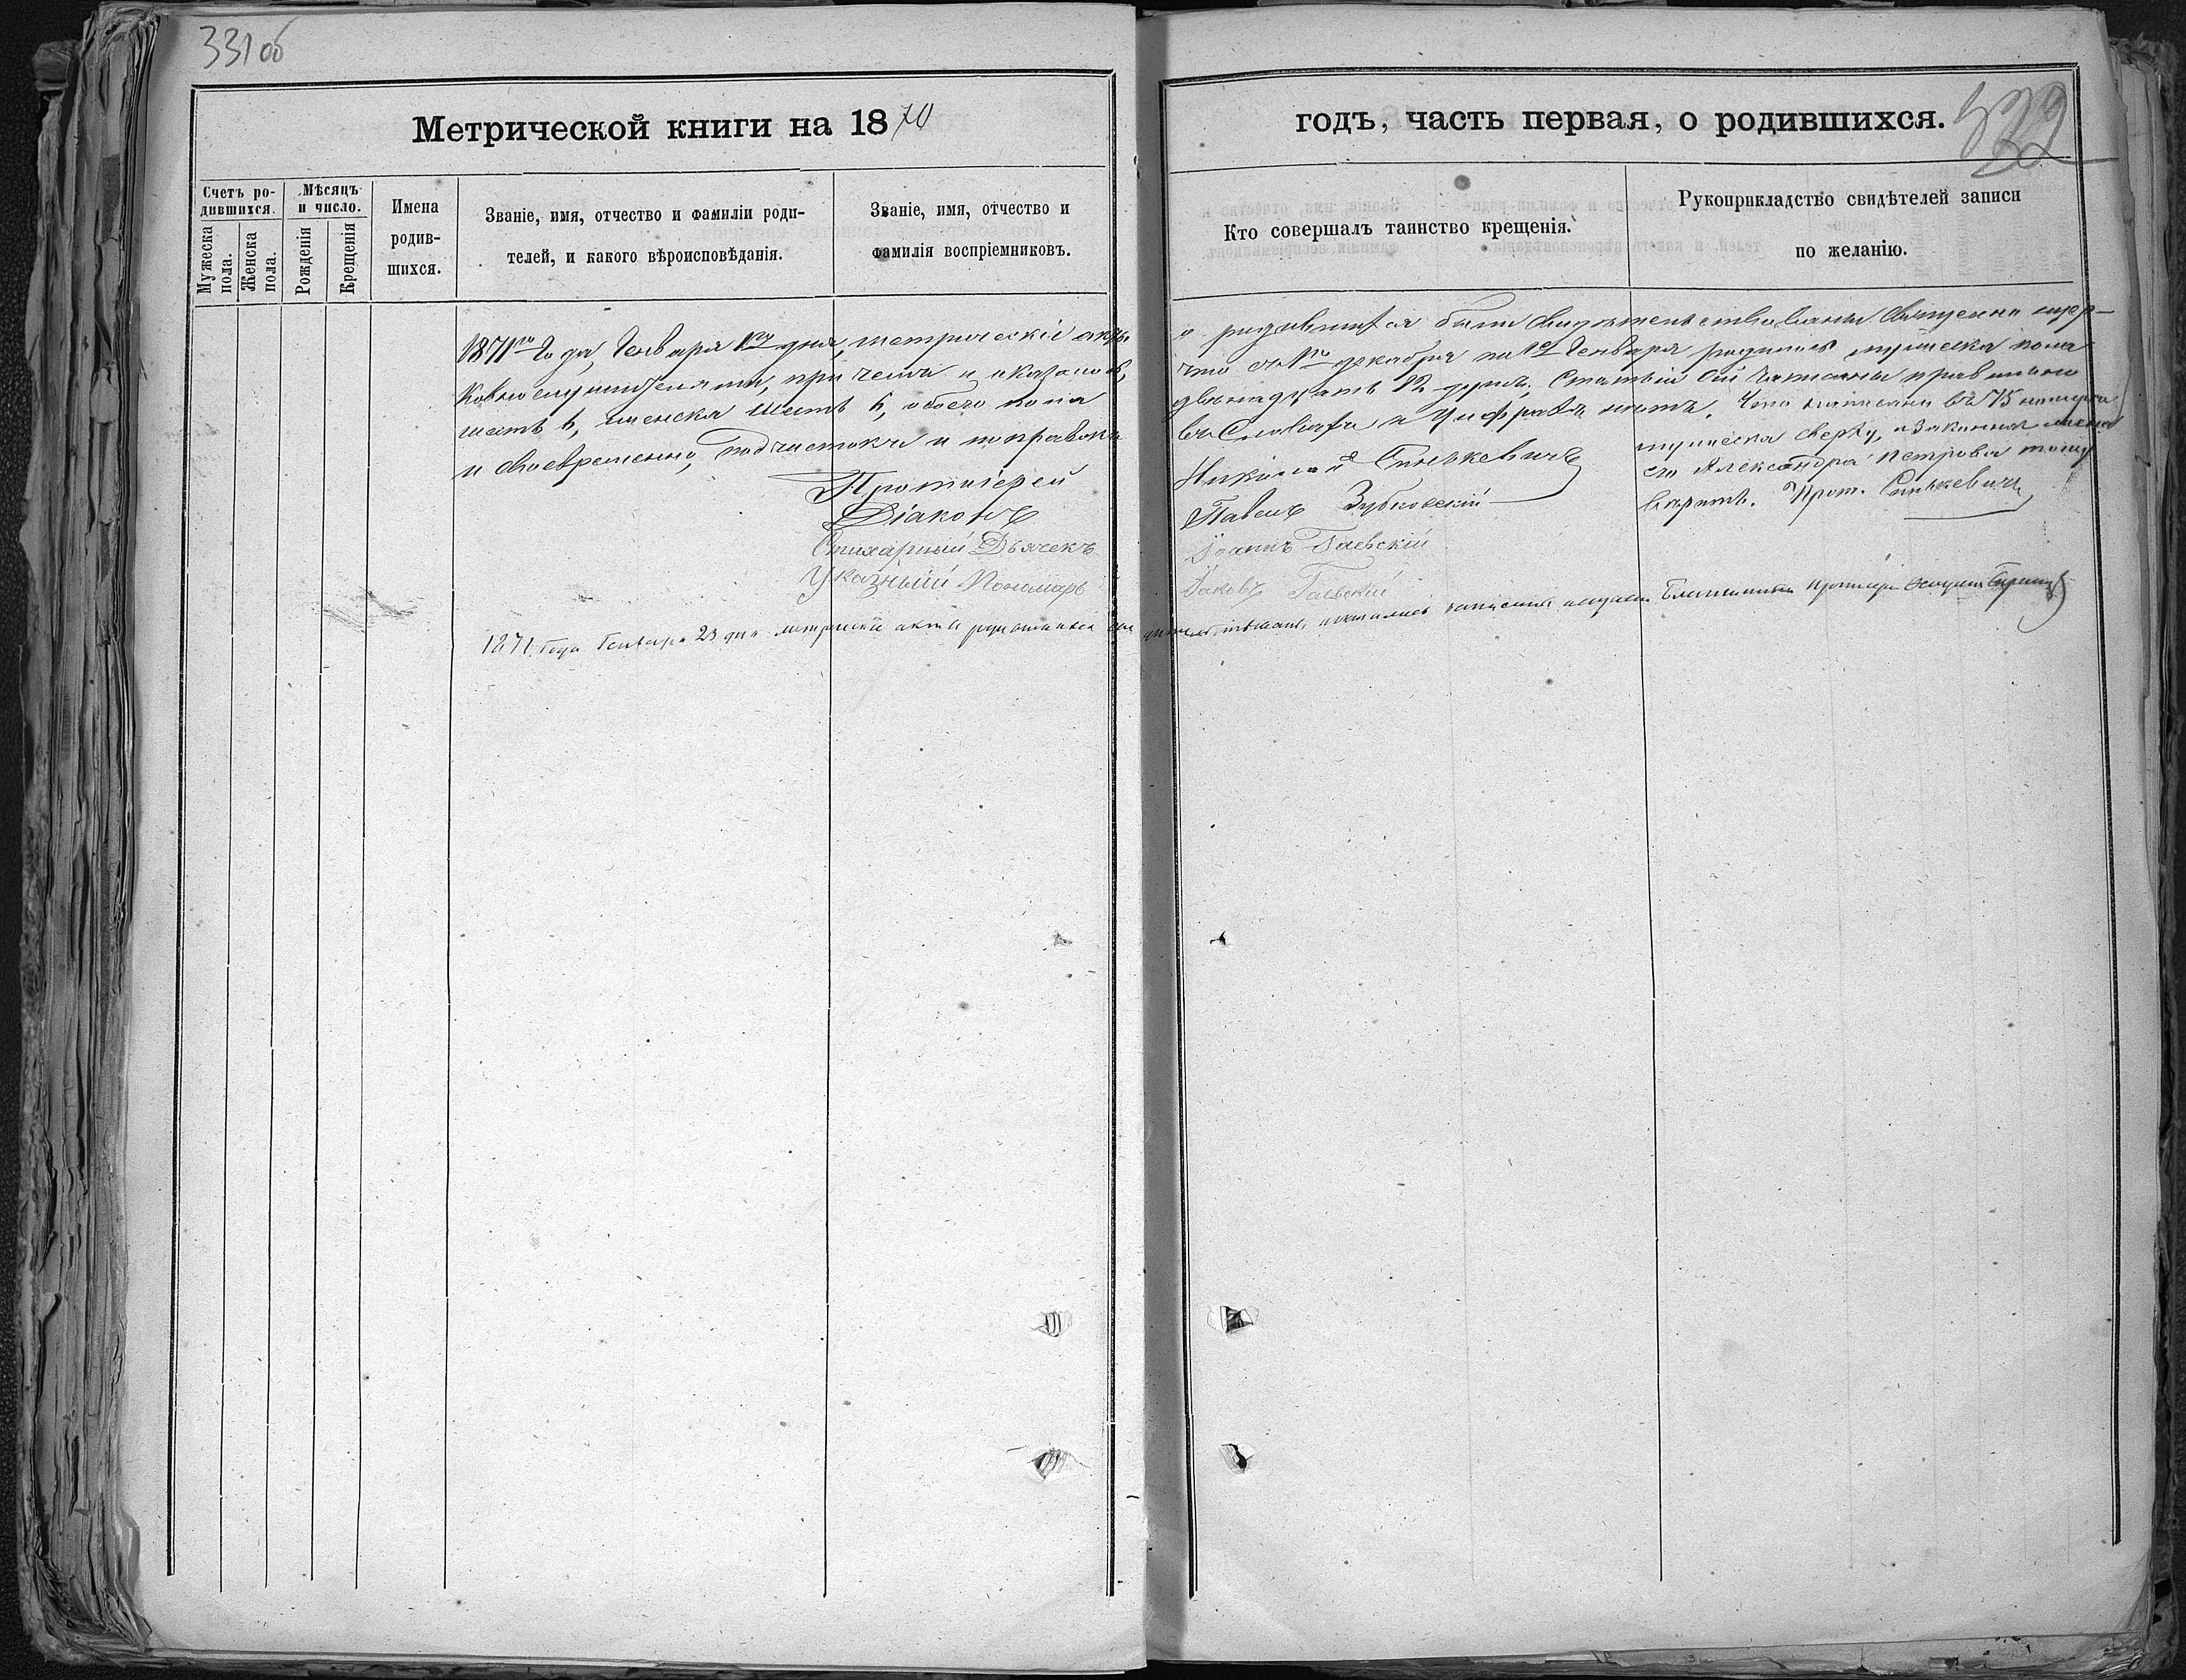 331 об
332
Метрической книги на 1870
годъ, часть первая, о родившихся.
Счетъ ро-
дившихся.
Мужеска
пола.
Женска
пола.
Мѣсяцъ
и число.
Рожденія
Крещенія
Имена
родив-
шихся.
Званіе, имя, отчество и фамиліи роди-
телей, и какого вѣроисповѣданія.
Званіе, имя, отчество и
фамилія воспріемниковъ.
Кто совершалъ таинство крещенія.
Рукоприкладство свидѣтелей записи
по желанію.
1871го Года, Генваря 1го дня, метрическіе акты о родившихся были свидѣтельствованы Священно цер-
ковнослужителями, при чемъ и оказалось, что съ 1го декабря по 1е Генваря родилось мужеска пола
шесть 6, женска шесть 6, обоего пола двѣнадцать 12 душъ. Статьи сіи записаны правильно
и своевременно, подчистокъ и поправокъ въ Словахъ и Цифрахъ нѣтъ. Что написано въ 75 номерѣ
мужеска сверху,
его Александра Петрова тому
вѣрить. Прот. Синькевичъ
Протоіерей Николай Синькевичъ
Діаконъ Павелъ Зубковскій
Стихарный Дьячекъ Іоаннъ Гаевскій
Указный Пономарь Іаковъ Гаевскій
1871 Года Генваря 23 дня метрическіе акты родившихся Благочинный Протоіерей